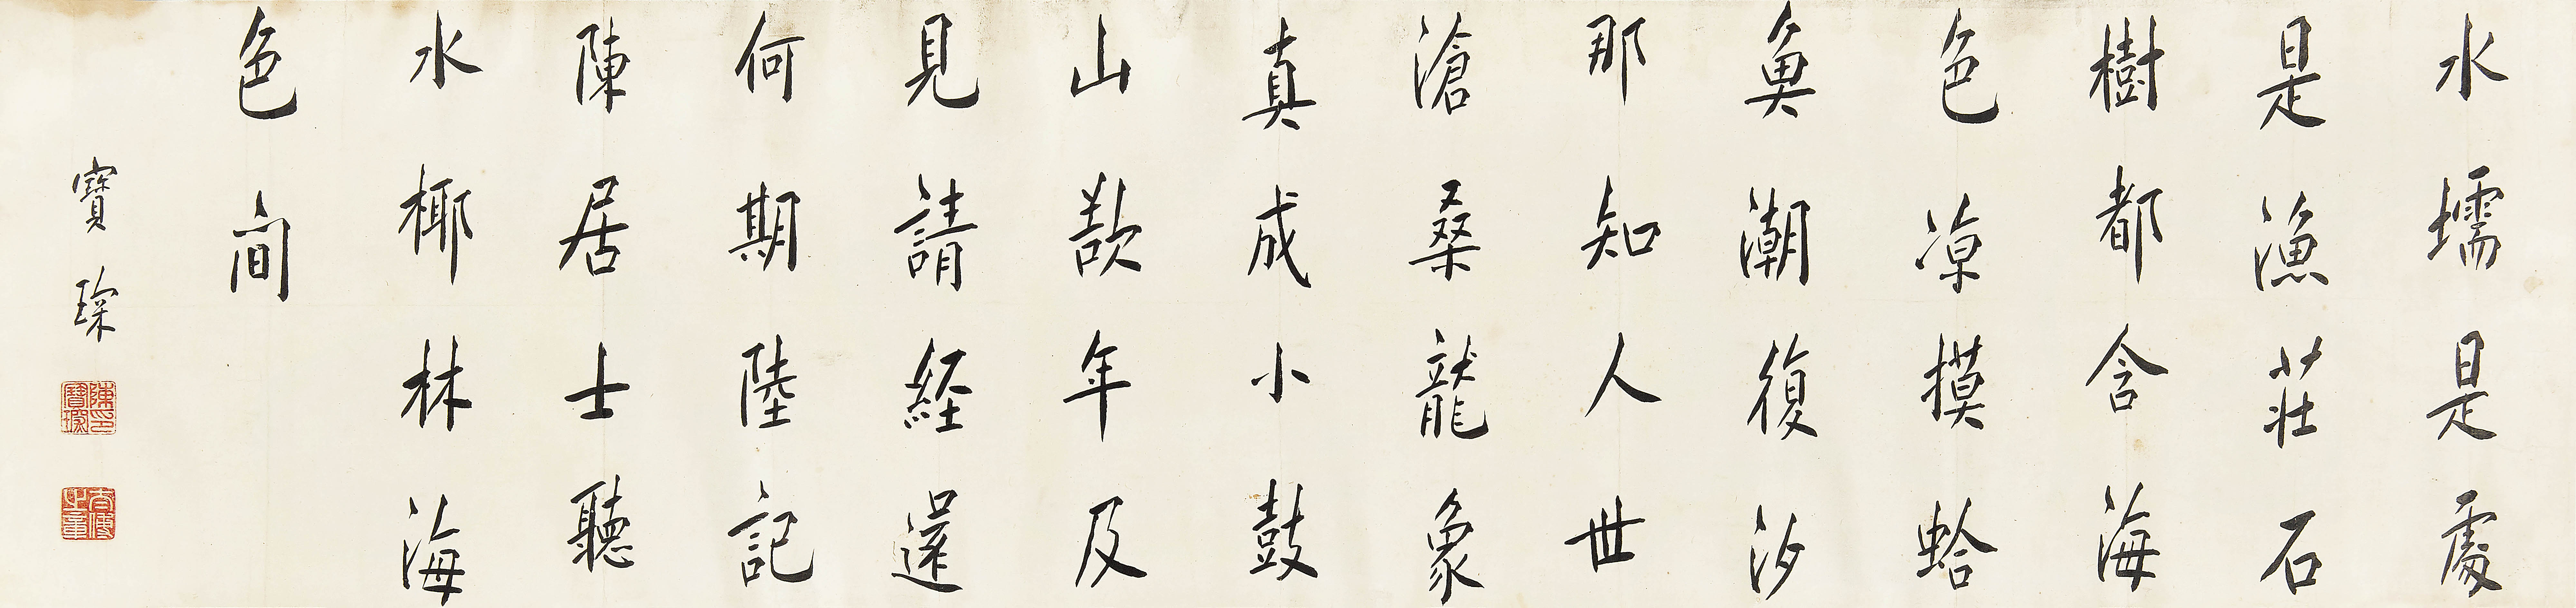 水壖是處
是漁莊石
樹都含海
色涼摸蛤
魚潮復汐
那知人世
滄桑龍象
真成小鼓
山歎年及
見請經還
何期陸記
陳居士聽
水椰林海
色間
寶琛
陳寶琛印
太傅之章